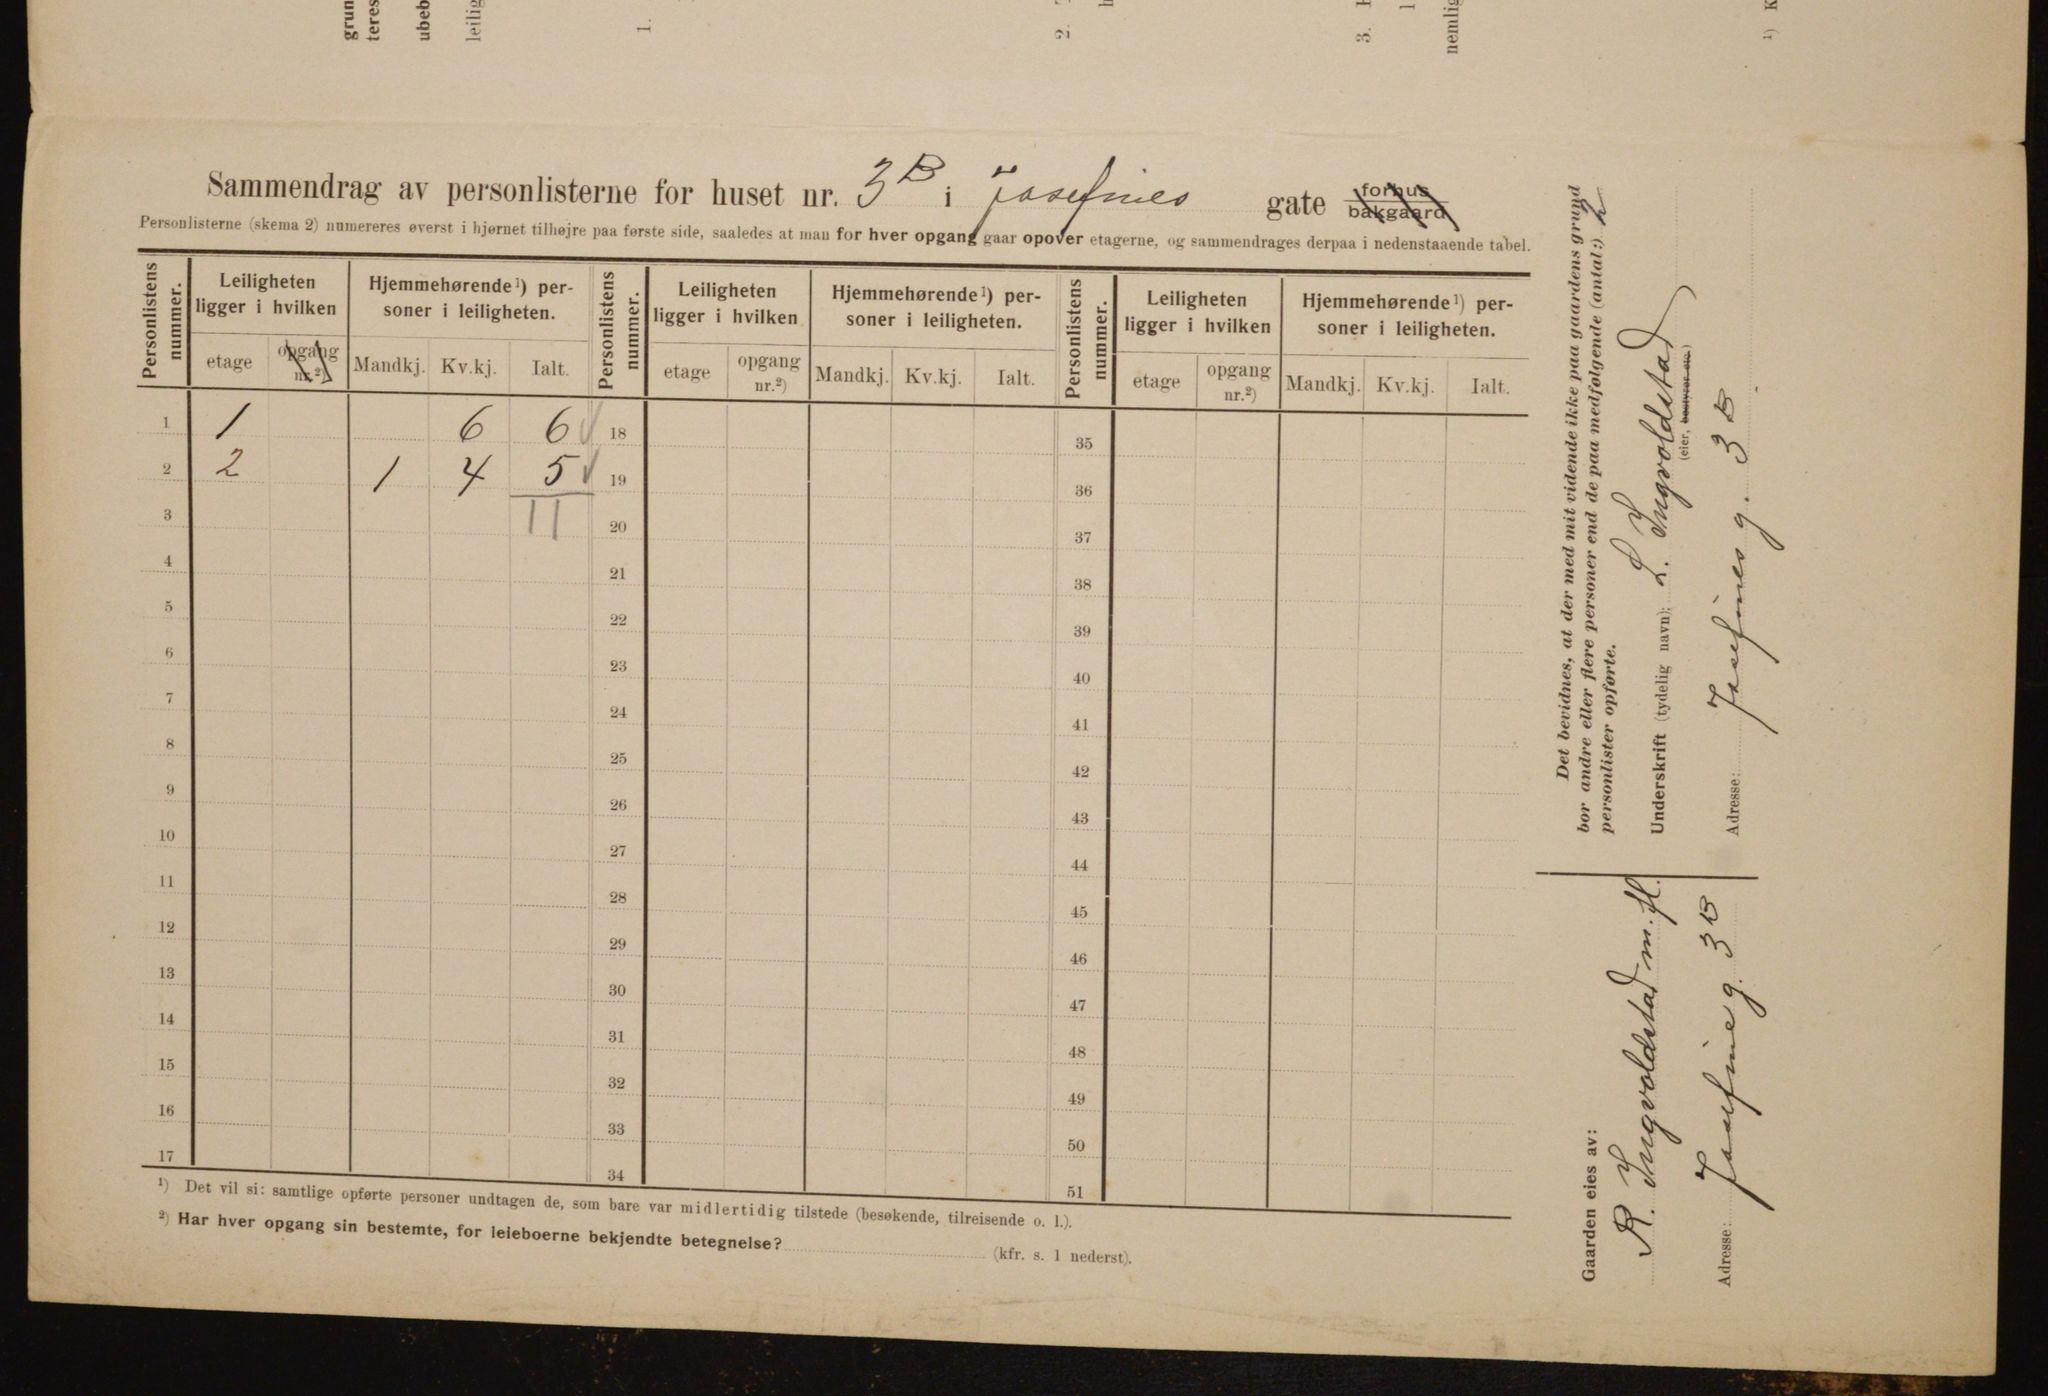 grun
teres
ubeb
leilig
1.
2.
3.
nemlig
¹) K
Sammendrag av personlisterne for huset nr. 3B i Josefines gate forhus
bakgaard
Personlisterne (skema 2) numereres øverst i hjørnet tilhøjre paa første side, saaledes at man for hver opgang gaar opover etagerne, og sammendrages derpaa i nedenstaaende tabel.
Personlistens nummer. Leiligheten ligger i hvilken Hjemmehørende¹) personer i leiligheten. Personlistens nummer. Leiligheten ligger i hvilken Hjemmehørende¹) personer i leiligheten. Personlistens nummer. Leiligheten ligger i hvilken Hjemmehørende¹) personer i leiligheten.
etage opgang nr.²) Mandkj. Kv.kj. Ialt. etage opgang nr.²) Mandkj. Kv.kj. Ialt. etage opgang nr.²) Mandkj. Kv.kj. Ialt.
1 1 6 6 18 35
2 2 1 4 5 19 36
3 11 20 37
4 21 38
5 22 39
6 23 40
7 24 41
8 25 42
9 26 43
10 27 44
11 28 45
12 29 46
13 30 47
14 31 48
15 32 49
16 33 50
17 34 51
¹) Det vil si: samtlige opførte personer undtagen de, som bare var midlertidig tilstede (besøkende, tilreisende o. l.).
²) Har hver opgang sin bestemte, for leieboerne bekjendte betegnelse? (kfr. s. 1 nederst).
Det bevidnes, at der med mit vidende ikke paa gaardens grund
bor andre eller flere personer end de paa medfølgende (antal:) 2
personlister opførte.
Underskrift (tydelig navn): L. Ingvoldstad
(eier, bestyrer etc.)
Adresse: Josefines g. 3B
Gaarden eies av:
R. Ingvoldstad m. fl.
Adresse: Josefine g. 3B